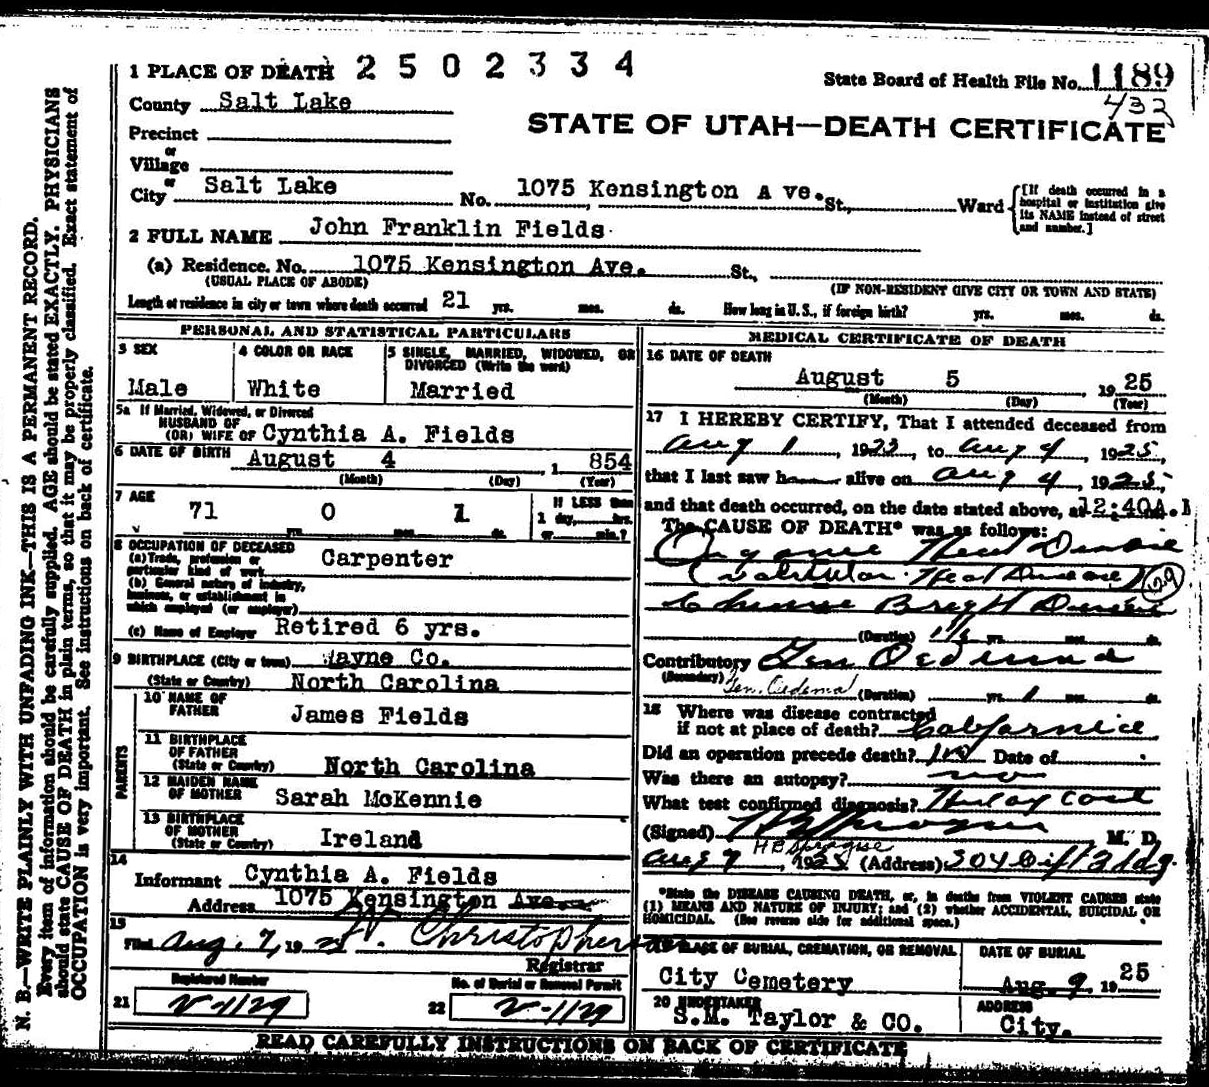 1 PLACE OF DEATH 2502334
State Board of Health File No. 1189
432
County Salt Lake
STATE OF UTAH—DEATH CERTIFICATE
Precinct
or
Village
or
City Salt Lake No. 1075 Kensington A ve. St., Ward
[If death occurred in a hospital or institution give its NAME instead of street and number.]
2 FULL NAME John Franklin Fields
(a) Residence. No. 1075 Kensington Ave. St.,
(USUAL PLACE OF ABODE) (IF NON-RESIDENT GIVE CITY OR TOWN AND STATE)
Length of residence in city or town where death occurred 21 yrs. mos. ds. How long in U.S., if foreign birth? yrs. mos. ds.
PERSONAL AND STATISTICAL PARTICULARS
3 SEX
Male
4 COLOR OR RACE
White
5 SINGLE, MARRIED, WIDOWED, OR
DIVORCED (Write the word)
Married
5a If Married, Widowed, or Divorced
HUSBAND OF
(OR) WIFE OF Cynthia A. Fields
6 DATE OF BIRTH August 4 1 854
(Month) (Day) (Year)
7 AGE
71 0 1
yrs. mos. ds.
IF LESS than
1 day, hrs.
or min.?
8 OCCUPATION OF DECEASED
(a) Trade, profession or
particular kind of work Carpenter
(b) General nature of industry,
business, or establishment in
which employed (or employer)
(c) Name of Employer Retired 6 yrs.
9 BIRTHPLACE (City or town) Wayne Co.
(State or Country) North Carolina
PARENTS
10 NAME OF
FATHER James Fields
11 BIRTHPLACE
OF FATHER
(State or Country) North Carolina
12 MAIDEN NAME
OF MOTHER Sarah McKennie
13 BIRTHPLACE
OF MOTHER
(State or Country) Ireland
14
Informant Cynthia A. Fields
Address 1075 Kensington Ave.
15
Filed Aug. 7, 19 Christopherson
Registrar
Registered Number
No. of Burial or Removal Permit
21 V-1129
22 V-1129
MEDICAL CERTIFICATE OF DEATH
16 DATE OF DEATH
August 5 1925
(Month) (Day) (Year)
17 I HEREBY CERTIFY, That I attended deceased from
Aug 1, 1923, to Aug 4, 1925,
that I last saw h alive on Aug 4, 1925,
and that death occurred, on the date stated above, at 12:40A.
The CAUSE OF DEATH* was as follows:
Organic Heart Disease
(Valvular Heart Disease) 129
Chronic Bright Disease
(Duration) yrs. mos. ds.
Contributory Gen Oedema
(Secondary) Gen. Oedema (Duration) yrs. 1 mos. ds.
18 Where was disease contracted
if not at place of death? California
Did an operation precede death? no Date of
Was there an autopsy? no
What test confirmed diagnosis?
(Signed) HB Sprague M. D.
HB Sprague
Aug 7, 1925 (Address) 304 Clift Bldg
*State the DISEASE CAUSING DEATH, or, in deaths from VIOLENT CAUSES state
(1) MEANS AND NATURE OF INJURY; and (2) whether ACCIDENTAL, SUICIDAL OR
HOMICIDAL. (See reverse side for additional space.)
PLACE OF BURIAL, CREMATION, OR REMOVAL
City Cemetery
DATE OF BURIAL
Aug. 9, 1925
20 UNDERTAKER
S.M. Taylor & CO.
ADDRESS
City.
READ CAREFULLY INSTRUCTIONS ON BACK OF CERTIFICATE
N. B.—WRITE PLAINLY WITH UNFADING INK—THIS IS A PERMANENT RECORD.
Every item of information should be carefully supplied. AGE should be stated EXACTLY. PHYSICIANS
should state CAUSE OF DEATH in plain terms, so that it may be properly classified. Exact statement of
OCCUPATION is very important. See instructions on back of certificate.